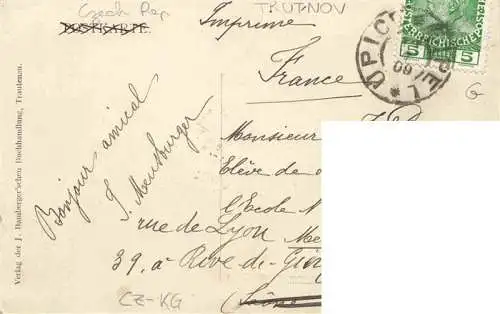 Czech Rep
TRUTNOV
POSTKARTE
Imprimé
France
UPICE
5 5
Verlag der J. Bamberger'schen Buchhandlung, Trautenau.
Bonjour amical
Monsieur
Elève de
l'Ecole
rue de Lyon
39, à Rive-de-Gier
CZ-KG
G